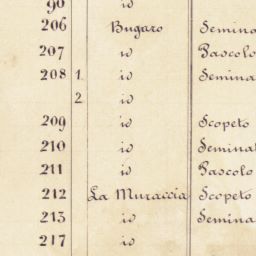 90 id
206 Bugaro Semina
207 id Pascolo
208 1 id Semina
2 id
209 id Scopeto
210 id Seminat
211 id Pascolo
212 La Muraccia Scopeto
213 id Semina
217 id